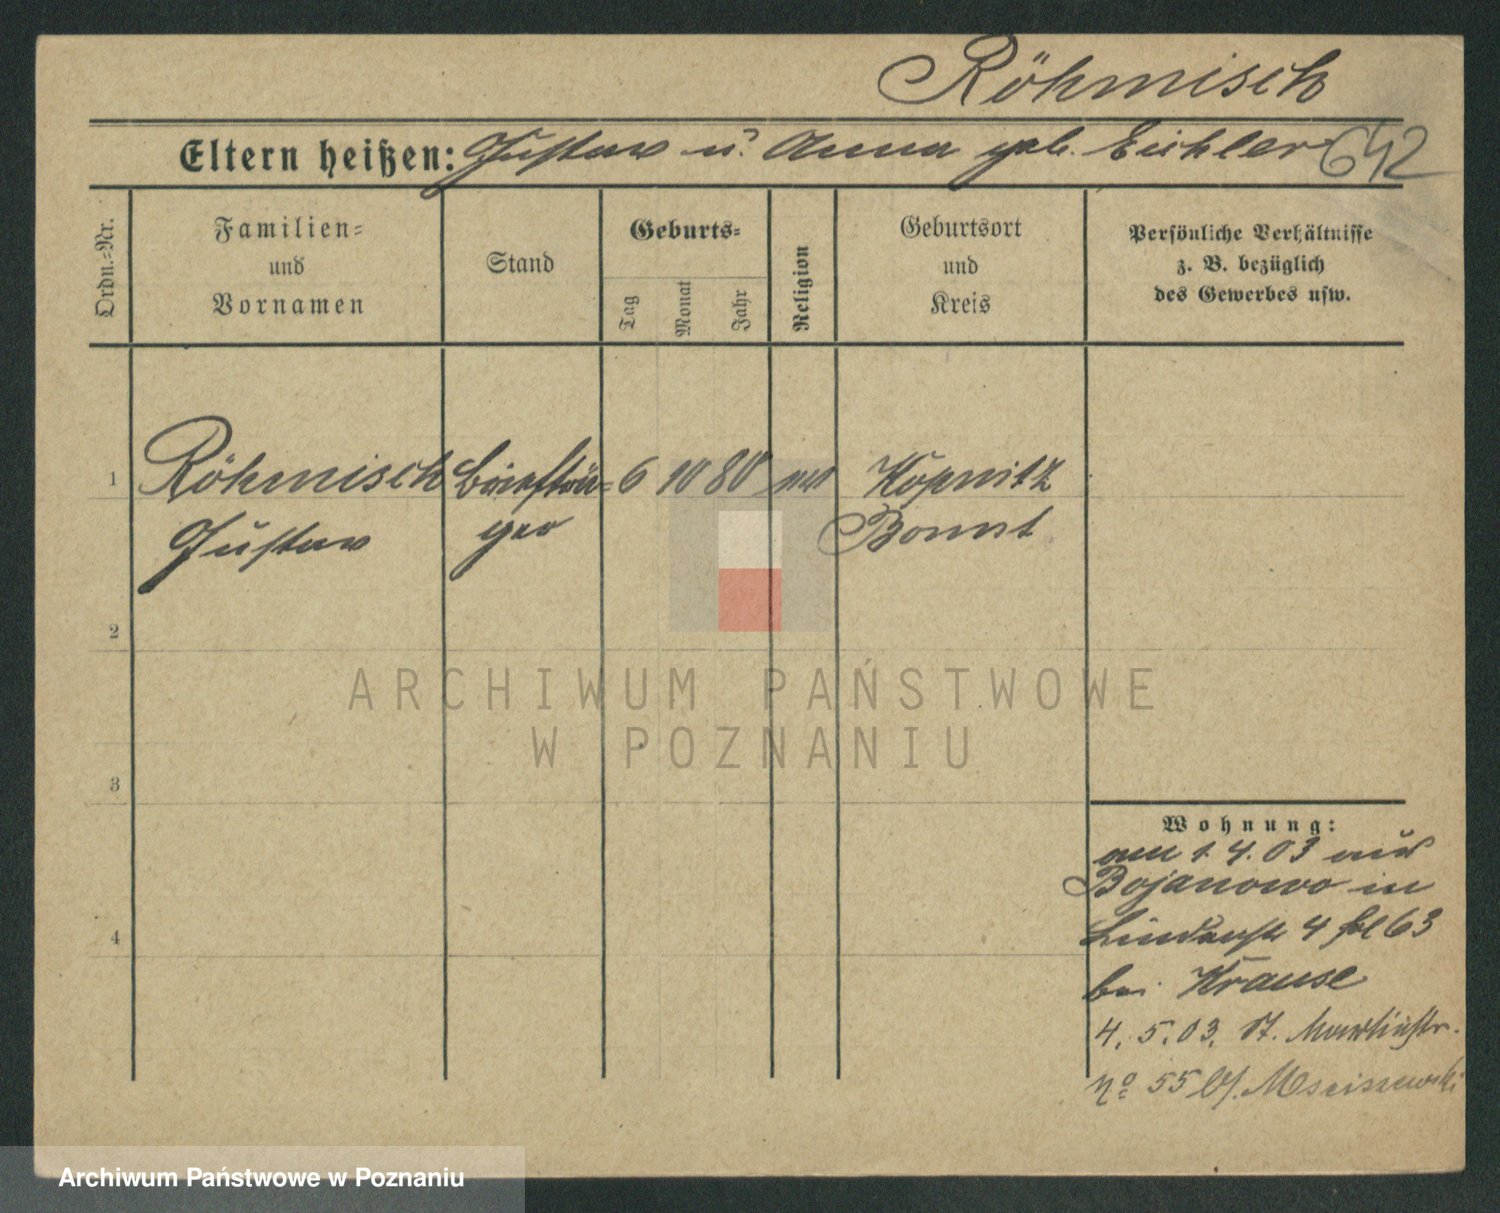 Röhmisch
Eltern heißen: Gustav u. Anna geb. Eichler 642
Ordn.-Nr.
Familien-
und
Vornamen
Stand
Geburts-
Tag
Monat
Jahr
Religion
Geburtsort
und
Kreis
Persönliche Verhältnisse
z. B. bezüglich
des Gewerbes usw.
1 Röhmisch Briefträ- 6 10 80 Kopnitz
Gustav ger Bomst
2
3
4
ARCHIWUM PAŃSTWOWE
W POZNANIU
Wohnung:
am 1. 4. 03 aus
Bojanowo in
Lindenstr 4 63
bei Krause
4. 5. 03. St. Martinstr.
No 55 b/. Msciszewski
Archiwum Państwowe w Poznaniu